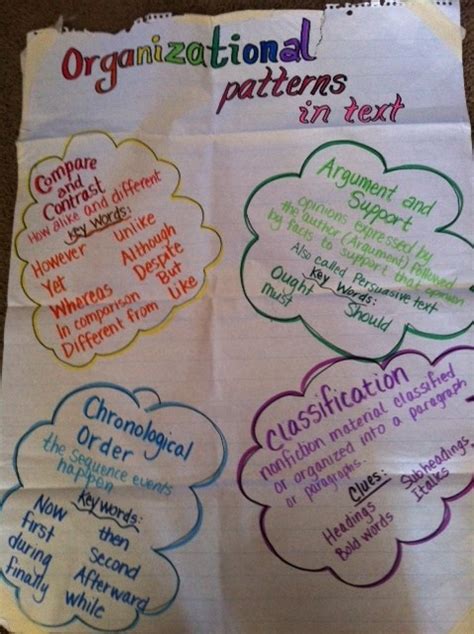 Organizational
patterns
in text
Compare
and
Contrast
How alike and different
Key Words:
However unlike
Yet Although
Whereas Despite
In comparison But
Different from Like
Argument and
Support
opinions expressed by
the author (Argument) followed
by facts to support that opinion
Also called Persuasive text
Key Words:
Ought Should
must
Chronological
Order
the sequence events
happen
Key words:
Now then
first Second
during Afterward
finally while
Classification
nonfiction material classified
or organized into a paragraph
or paragraphs.
Clues:
Headings Subheadings
Bold words Italks